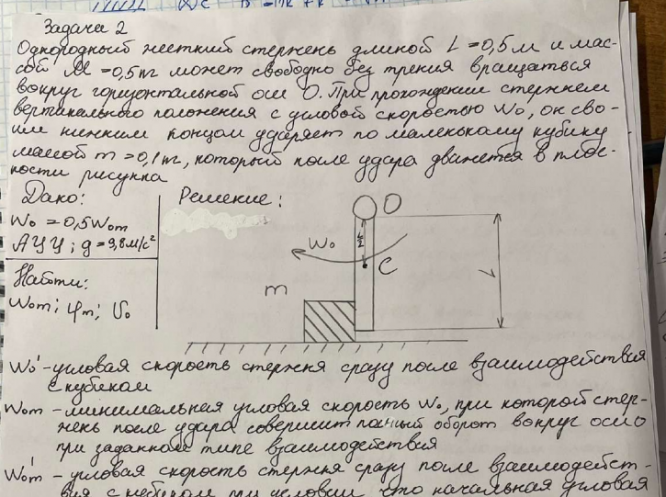 Задача 2
Однородный жесткий стержень длиной L = 0,5 м и мас-
сой M = 0,5 кг может свободно без трения вращаться
вокруг горизонтальной оси О. При прохождении стержнем
вертикального положения с угловой скоростью ω₀, он сво-
им нижним концом ударяет по маленькому кубику
массой m = 0,1 кг, который после удара движется в плос-
кости рисунка
Дано:
ω₀ = 0,5ω₀m
АУУ; g = 9,8 м/с²
Найти:
ω₀m; φm; υ₀
Решение:
O
ω₀
C
m
L
ω₀' - угловая скорость стержня сразу после взаимодействия
с кубиком
ω₀m - минимальная угловая скорость ω₀, при которой стер-
жень после удара совершит полный оборот вокруг оси О
при заданном типе взаимодействия
ω₀m' - угловая скорость стержня сразу после взаимодейст-
вия с кубиком при условии, что начальная угловая